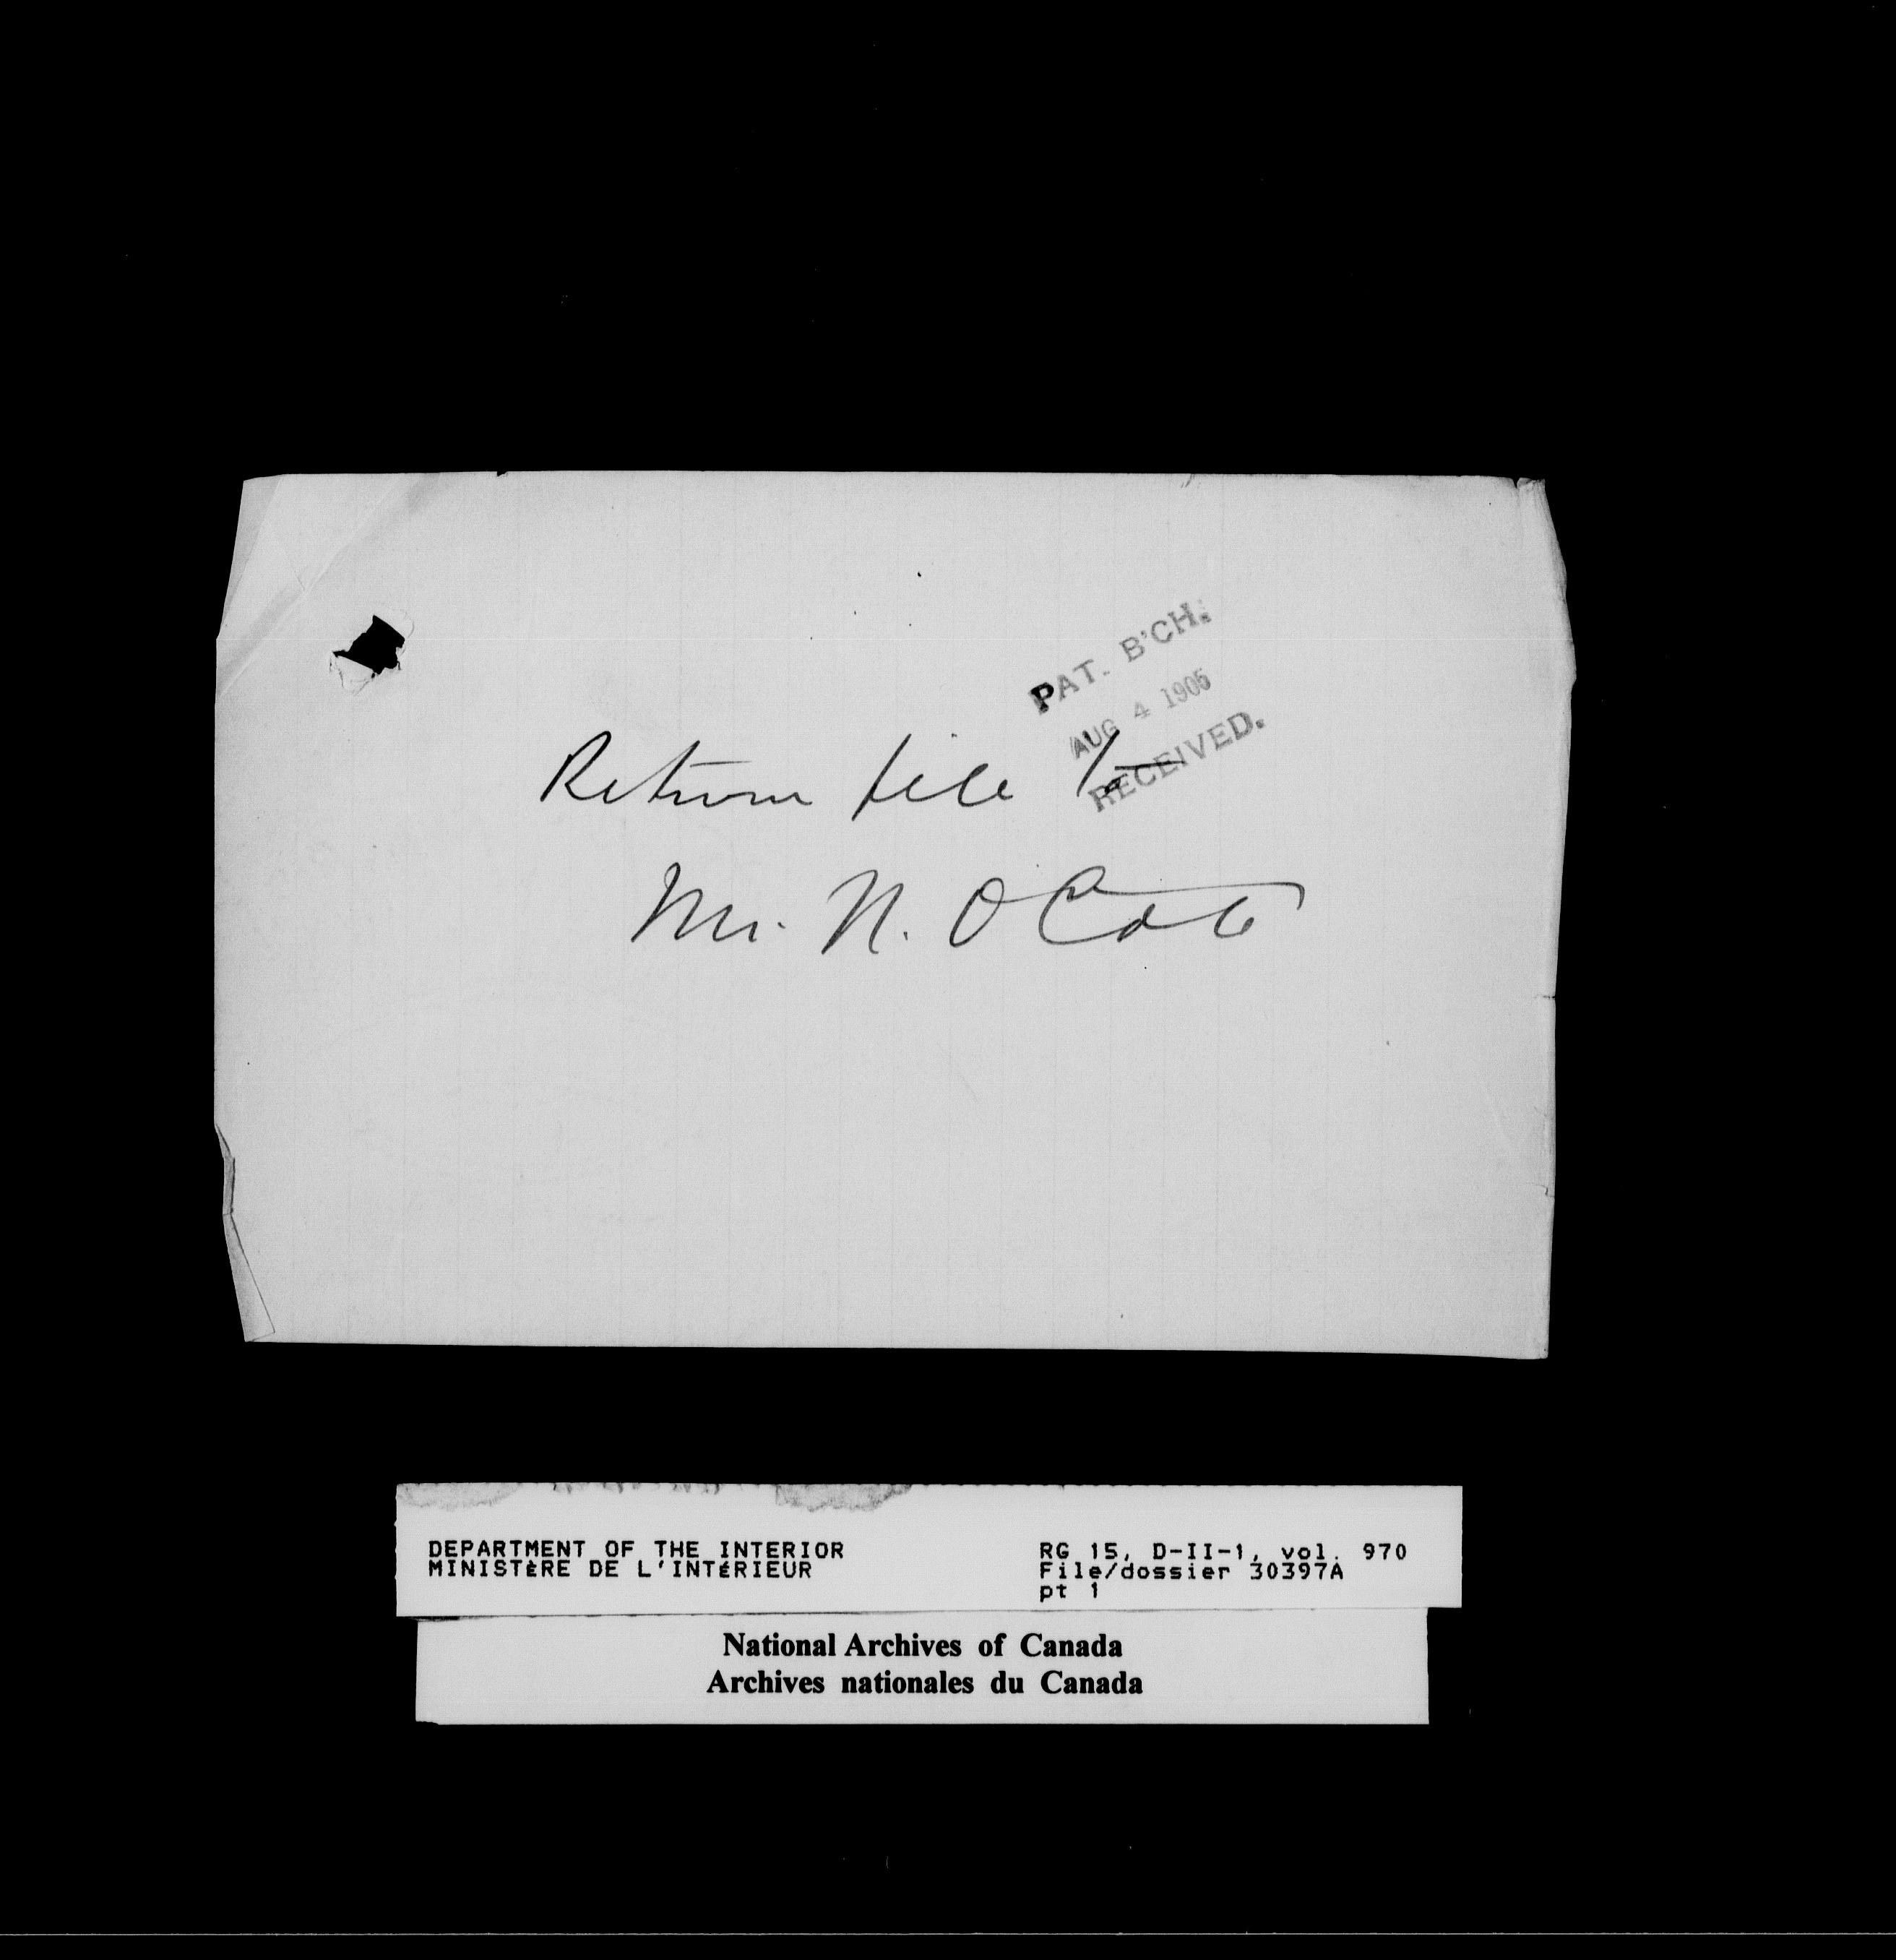 PAT. B'CH.
AUG 4 1905
RECEIVED.
Return file to
Mr. N. O Coté
DEPARTMENT OF THE INTERIOR
MINISTÈRE DE L'INTÉRIEUR
RG 15, D-II-1, vol. 970
File/dossier 30397A
pt 1
National Archives of Canada
Archives nationales du Canada